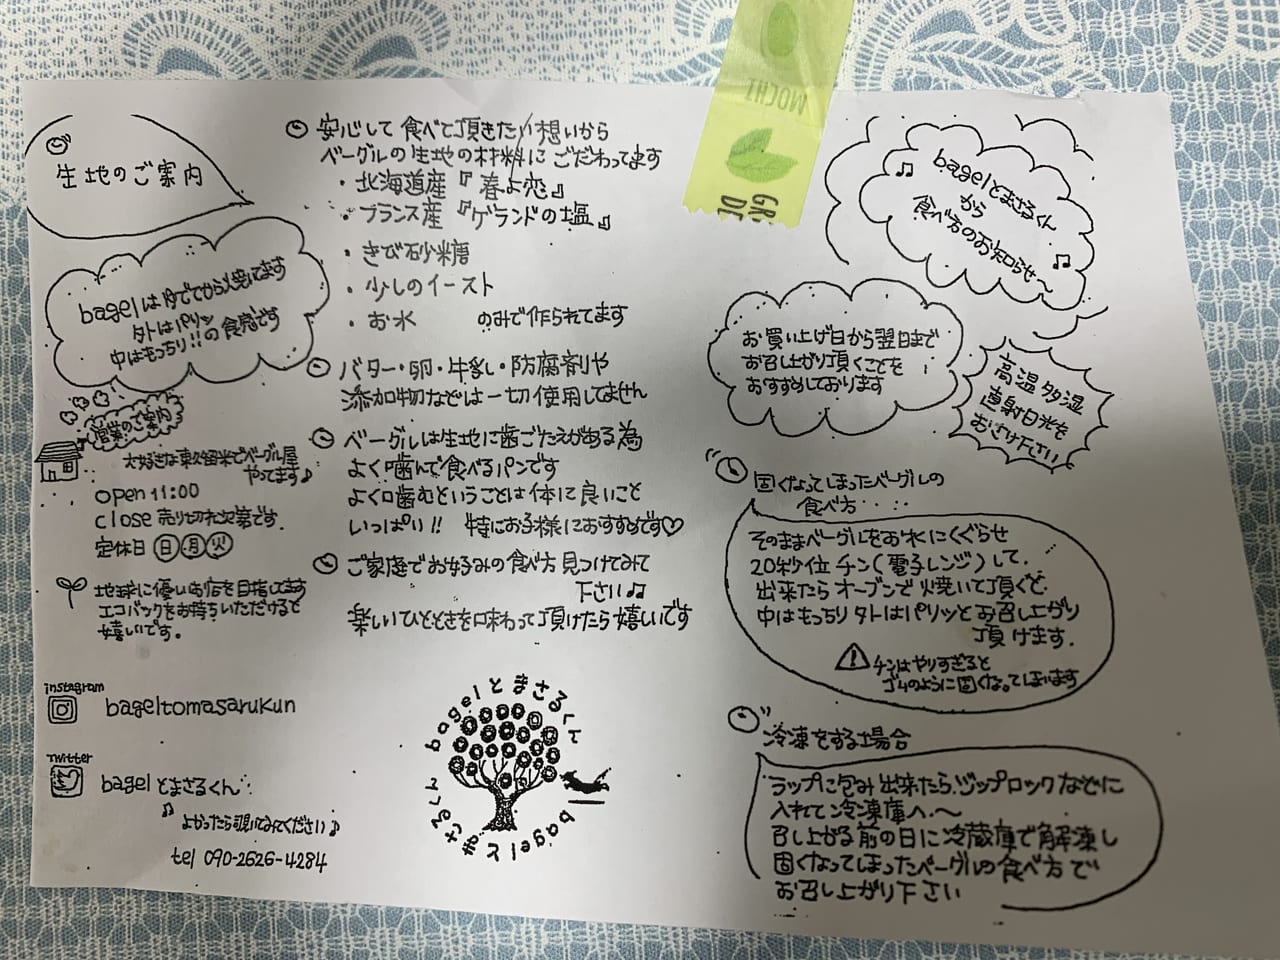 生地のご案内
bagelは茹でてから焼いてます
外はパリッ
中はもっちり!!の食感です
営業のご案内
大好きな東久留米でベーグル屋
やってます♪
open 11:00
close 売り切れ次第です.
定休日 日 月 火
地球に優しいお店を目指してます
エコバックをお持ちいただけると
嬉しいです。
instagram
bageltomasarukun
Twitter
bagelとまさるくん
♫ よかったら覗いてみてください♪
tel 090-2626-4284
安心して食べて頂きたい想いから
ベーグルの生地の材料にこだわってます
・北海道産『春よ恋』
・フランス産『ゲランドの塩』
・きび砂糖
・少しのイースト
・お水 のみで作られてます
バター・卵・牛乳・防腐剤や
添加物などは一切使用してません
ベーグルは生地に歯ごたえがある為
よく噛んで食べるパンです
よく噛むということは体に良いこと
いっぱい!! 特にお子様におすすめです♡
ご家庭でお好みの食べ方見つけてみて
下さい♫
楽しいひとときを味わって頂けたら嬉しいです
bagelとまさるくん
bagelとまさるくん
MOCHI
GR
DE
♫ bagelとまさるくん
から
食べ方のお知らせ〜 ♫
お買い上げ日から翌日まで
お召し上がり頂くことを
おすすめしております
高温多湿
直射日光を
おさけ下さい
固くなってしまったベーグルの
食べ方・・・
そのままベーグルをお水にくぐらせ
20秒位チン(電子レンジ)して.
出来たらオーブンで焼いて頂くと
中はもっちり外はパリッとお召し上がり
頂けます.
⚠ チンはやりすぎると
ゴムのように固くなってしまいます
冷凍をする場合
ラップに包み出来たらジップロックなどに
入れて冷凍庫へ〜
召し上がる前の日に冷蔵庫で解凍し
固くなってしまったベーグルの食べ方で
お召し上がり下さい